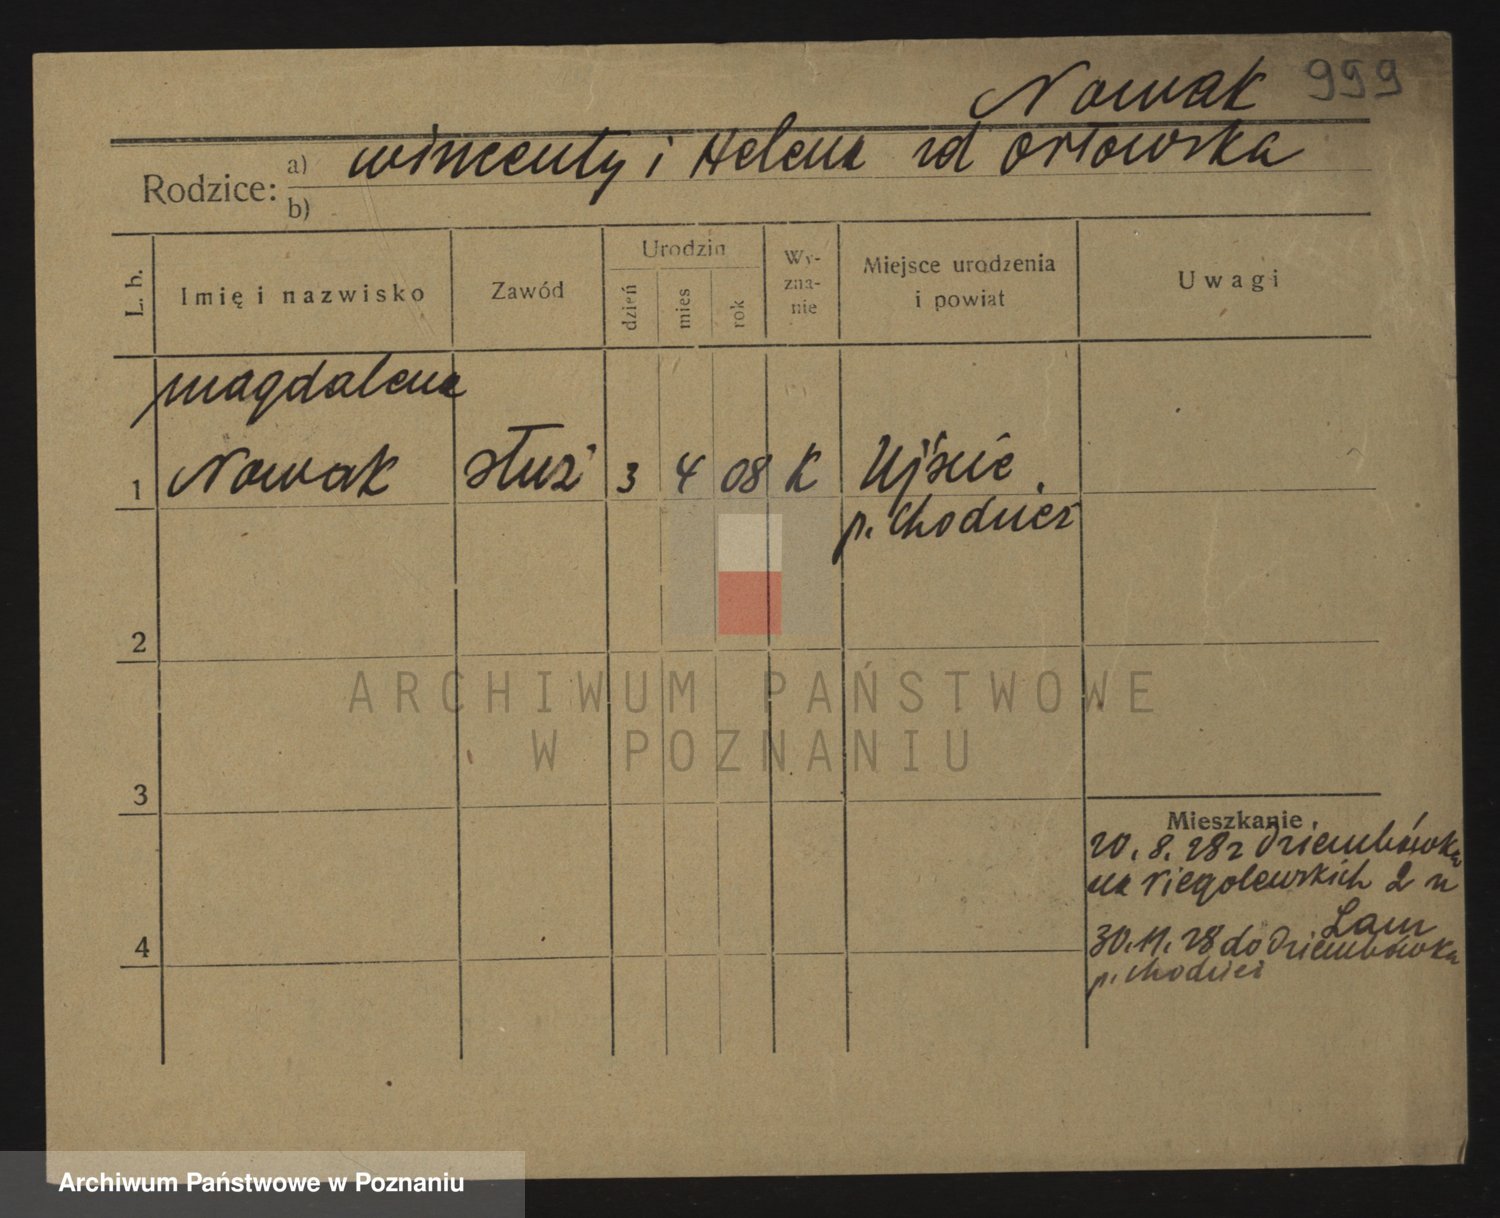 Nowak 999
Rodzice: a) Wincenty i Helena zd Orłowska
b)
L. b.
Imię i nazwisko
Zawód
Urodzin
dzień
mies
rok
Wy-
zna-
nie
Miejsce urodzenia
i powiat
Uwagi
Magdalena
1 Nowak służ 3 4 08 K Ujście
p. Chodzież
2
ARCHIWUM PAŃSTWOWE
W POZNANIU
3
Mieszkanie
20. 8. 28 z Dziembówka
na Niegolewskich 2 u
Lam
4
30. 11. 28 do Dziembówka
p. Chodzież
Archiwum Państwowe w Poznaniu